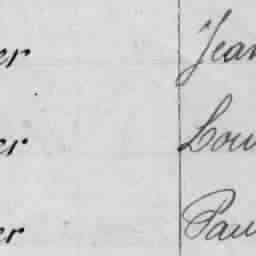 er Jean
er Lou
er Pau